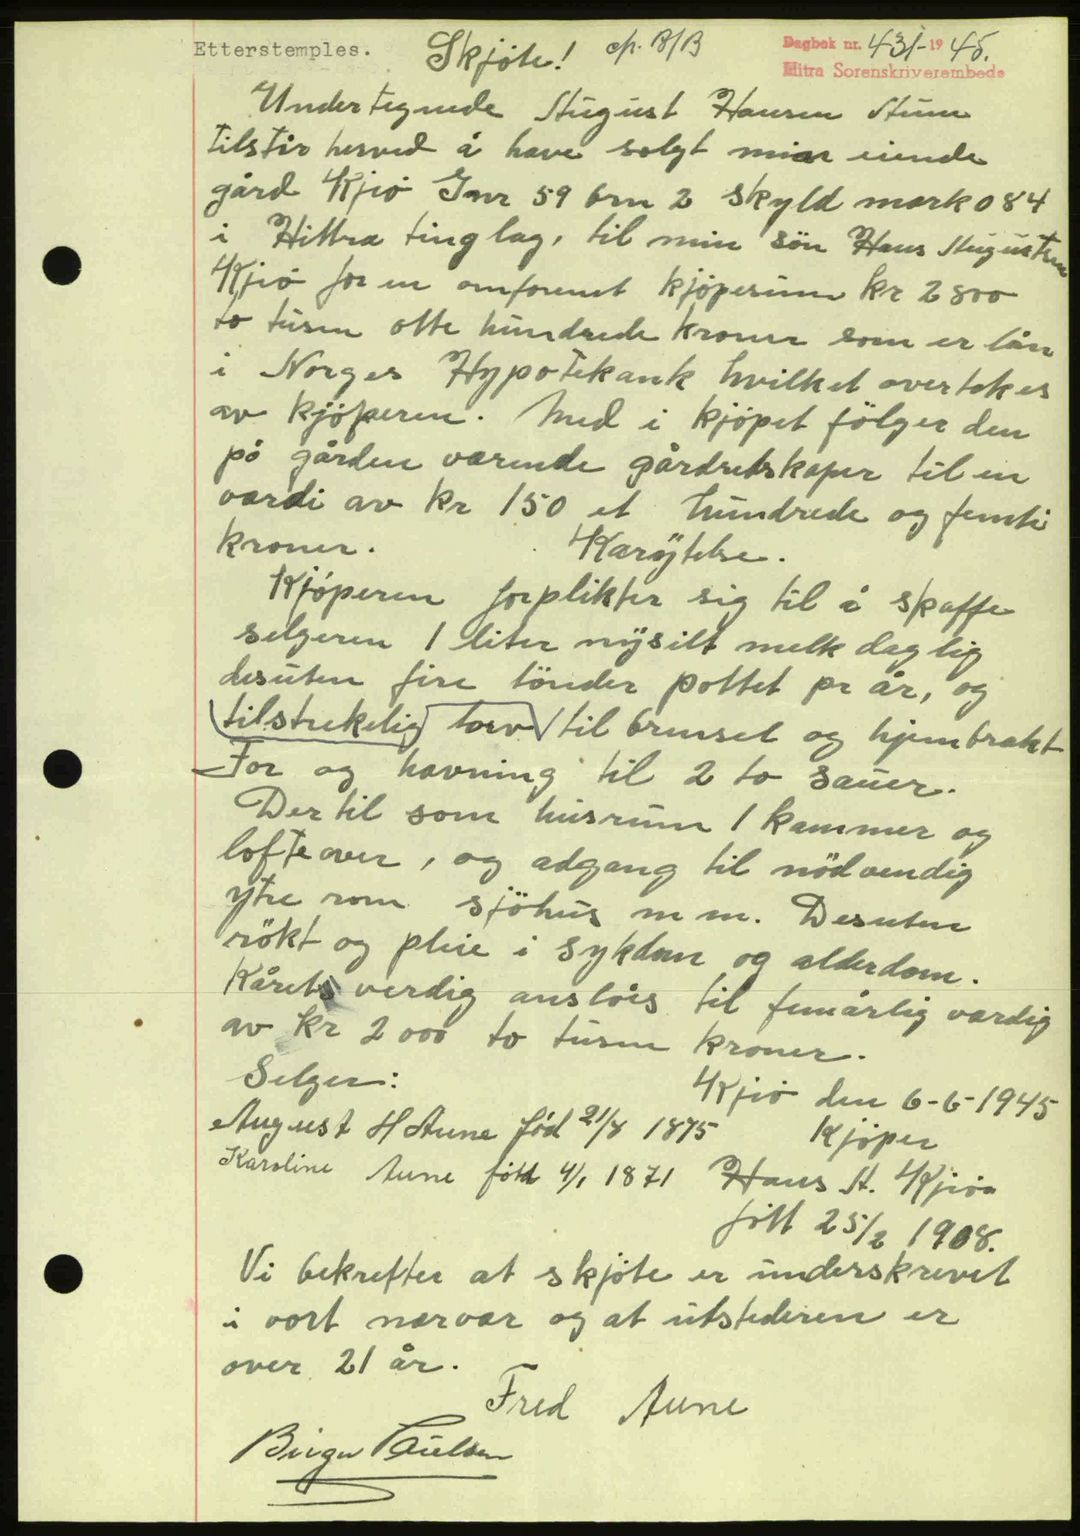 Etterstemples. Skjöte! Dagbok nr. 431-1945.
Hitra Sorenskriverembede
Undertegnede August Hansen Aune
tilstår herved å have solgt min eiende
gård Kjiø Gnr 59 brn 2 skyld mark 0 84
i Hittra tinglag, til min sön Hans Augustsen
Kjiø for en omforenet kjöpesum kr 2800
to tusen otte hundrede kroner som er lån
i Norges Hypotekank hvilket overtekes
av kjöperen. Med i kjöpet fölger den
på gården værende gårdredskaper til en
værdi av kr 150 et hundrede og femti
kroner. Kårytelse.
Kjöperen forplikter sig til å skaffe
selgeren 1 liter nysilt melk daglig
desuten fire tönder pottet pr år, og
tilstrekelig torv til brensel og hjembrakt
For og havning til 2 to sauer.
Dertil som husrum 1 kammer og
lofte over, og adgang til nödvendig
ytre rom sjöhus m m. Desuten
rökt og pleie i sykdom og alderdom.
Kårets verdig anslåes til femårlig værdig
av kr 2000 to tusen kroner.
Selger: Kjiø den 6-6-1945
August H Aune född 21/8 1875 Kjöper
Karoline Aune född 4/1 1871 Hans A. Kjiøn
fött 25/2 1908.
Vi bekrefter at skjöte er underskrevet
i vort nærvær og at utstederen er
over 21 år.
Fred Aune
Birger